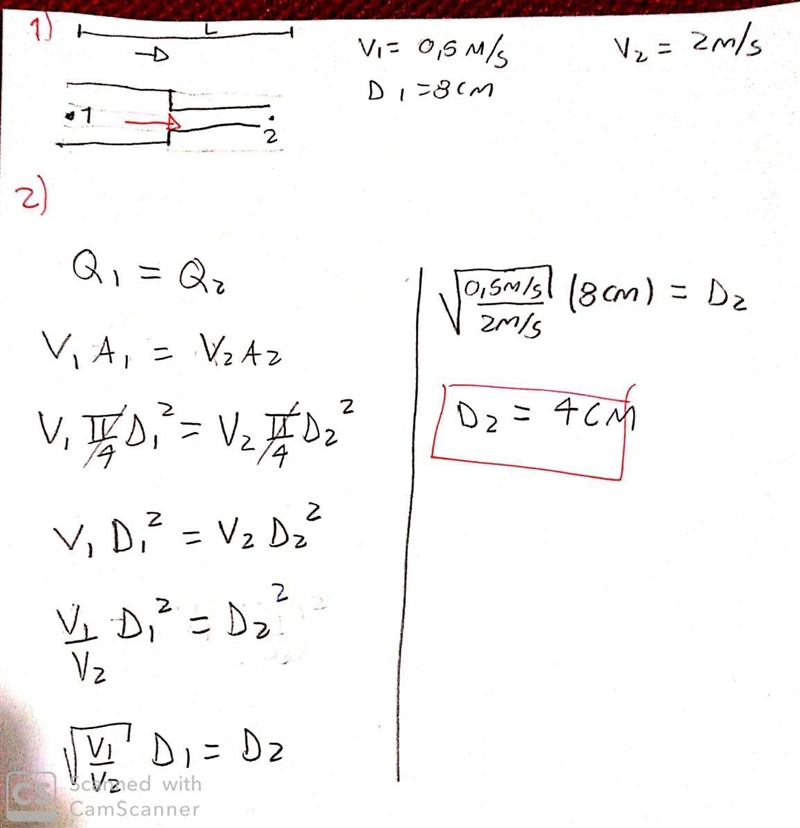 1) L
V₁ = 0,5 M/s
V₂ = 2m/s
D₁ = 8cm
1
2
2)
Q₁ = Q₂
V₁ A₁ = V₂ A₂
V₁ π/4 D₁² = V₂ π/4 D₂²
V₁ D₁² = V₂ D₂²
V₁/V₂ D₁² = D₂²
√(V₁/V₂) D₁ = D₂
√(0,5M/s / 2M/s) (8cm) = D₂
D₂ = 4CM
CS Scanned with
CamScanner